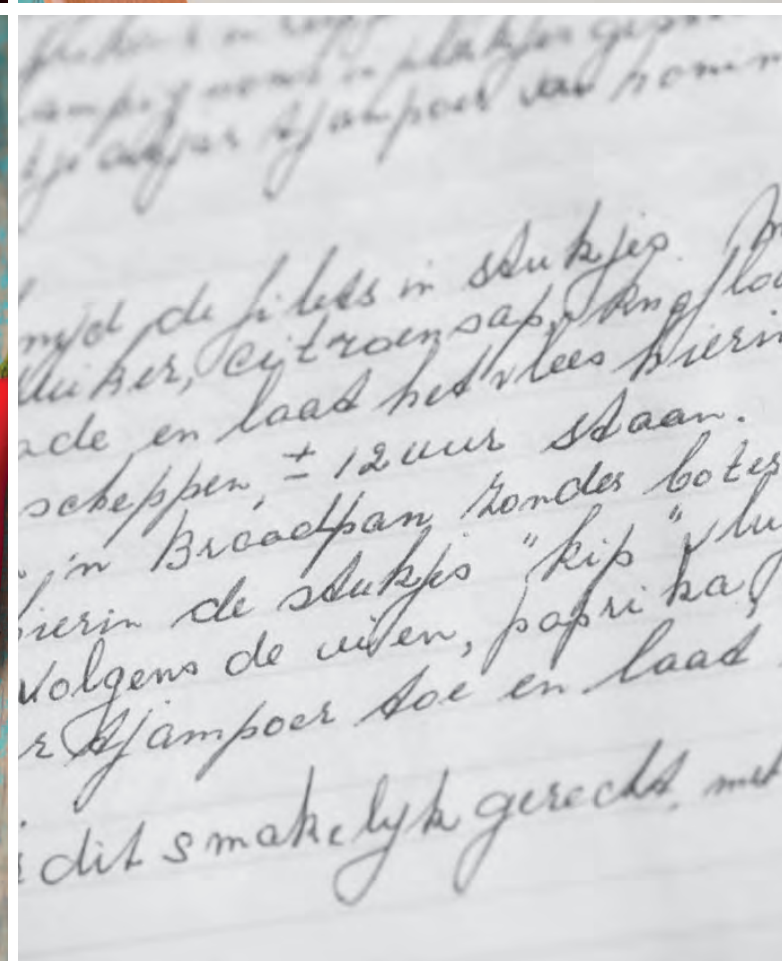 in plakjes
atjar tjampoer van
de filets in stukjes.
citroensap,
en laat het vlees hierin
scheppen, ± 12 uur staan.
in Braadpan zonder boter
hierin de stukjes "kip"
volgens de uien, paprika,
r tjampoer toe en laat
dit smakelyk gerecht, met